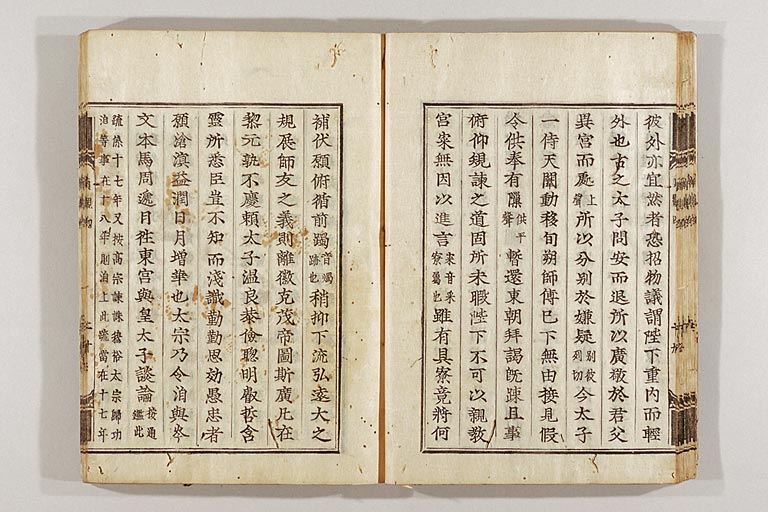 彼外亦宜然者恐招物議謂陛下重內而輕
外也古之太子問安而退所以廣敬於君父
異宮而處上聲所以分別於嫌疑別彼列切今太子
一侍天闈動移旬朔師傅已下無由接見假
令供奉有隙供平聲暫還東朝拜謁旣疎且事
俯仰規諫之道固所未暇陛下不可以親敎
宮寀無因以進言寀音采寮屬也雖有具寮竟將何
補伏願俯循前躅音蠋跡也稍抑下流弘遠大之
規展師友之義則離徽克茂帝圖斯廣凡在
黎元孰不慶賴太子溫良恭儉聰明叡哲含
靈所悉臣豈不知而淺識勤勤思効愚忠者
願滄溟益潤日月增華也太宗乃令洎與岑
文本馬周遞日往東宮與皇太子談論按通鑑此
疏係十七年又按高宗諫誅穆裕太宗歸功
洎等事在十八年則洎上此疏當在十七年